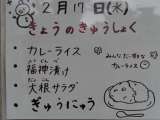 2月17日(水)
きょうのきゅうしょく
・カレーライス
みんなだい好きな
カレーライス
・福神漬け
ふくじんづ
・大根サラダ
だいこん
・ぎゅうにゅう